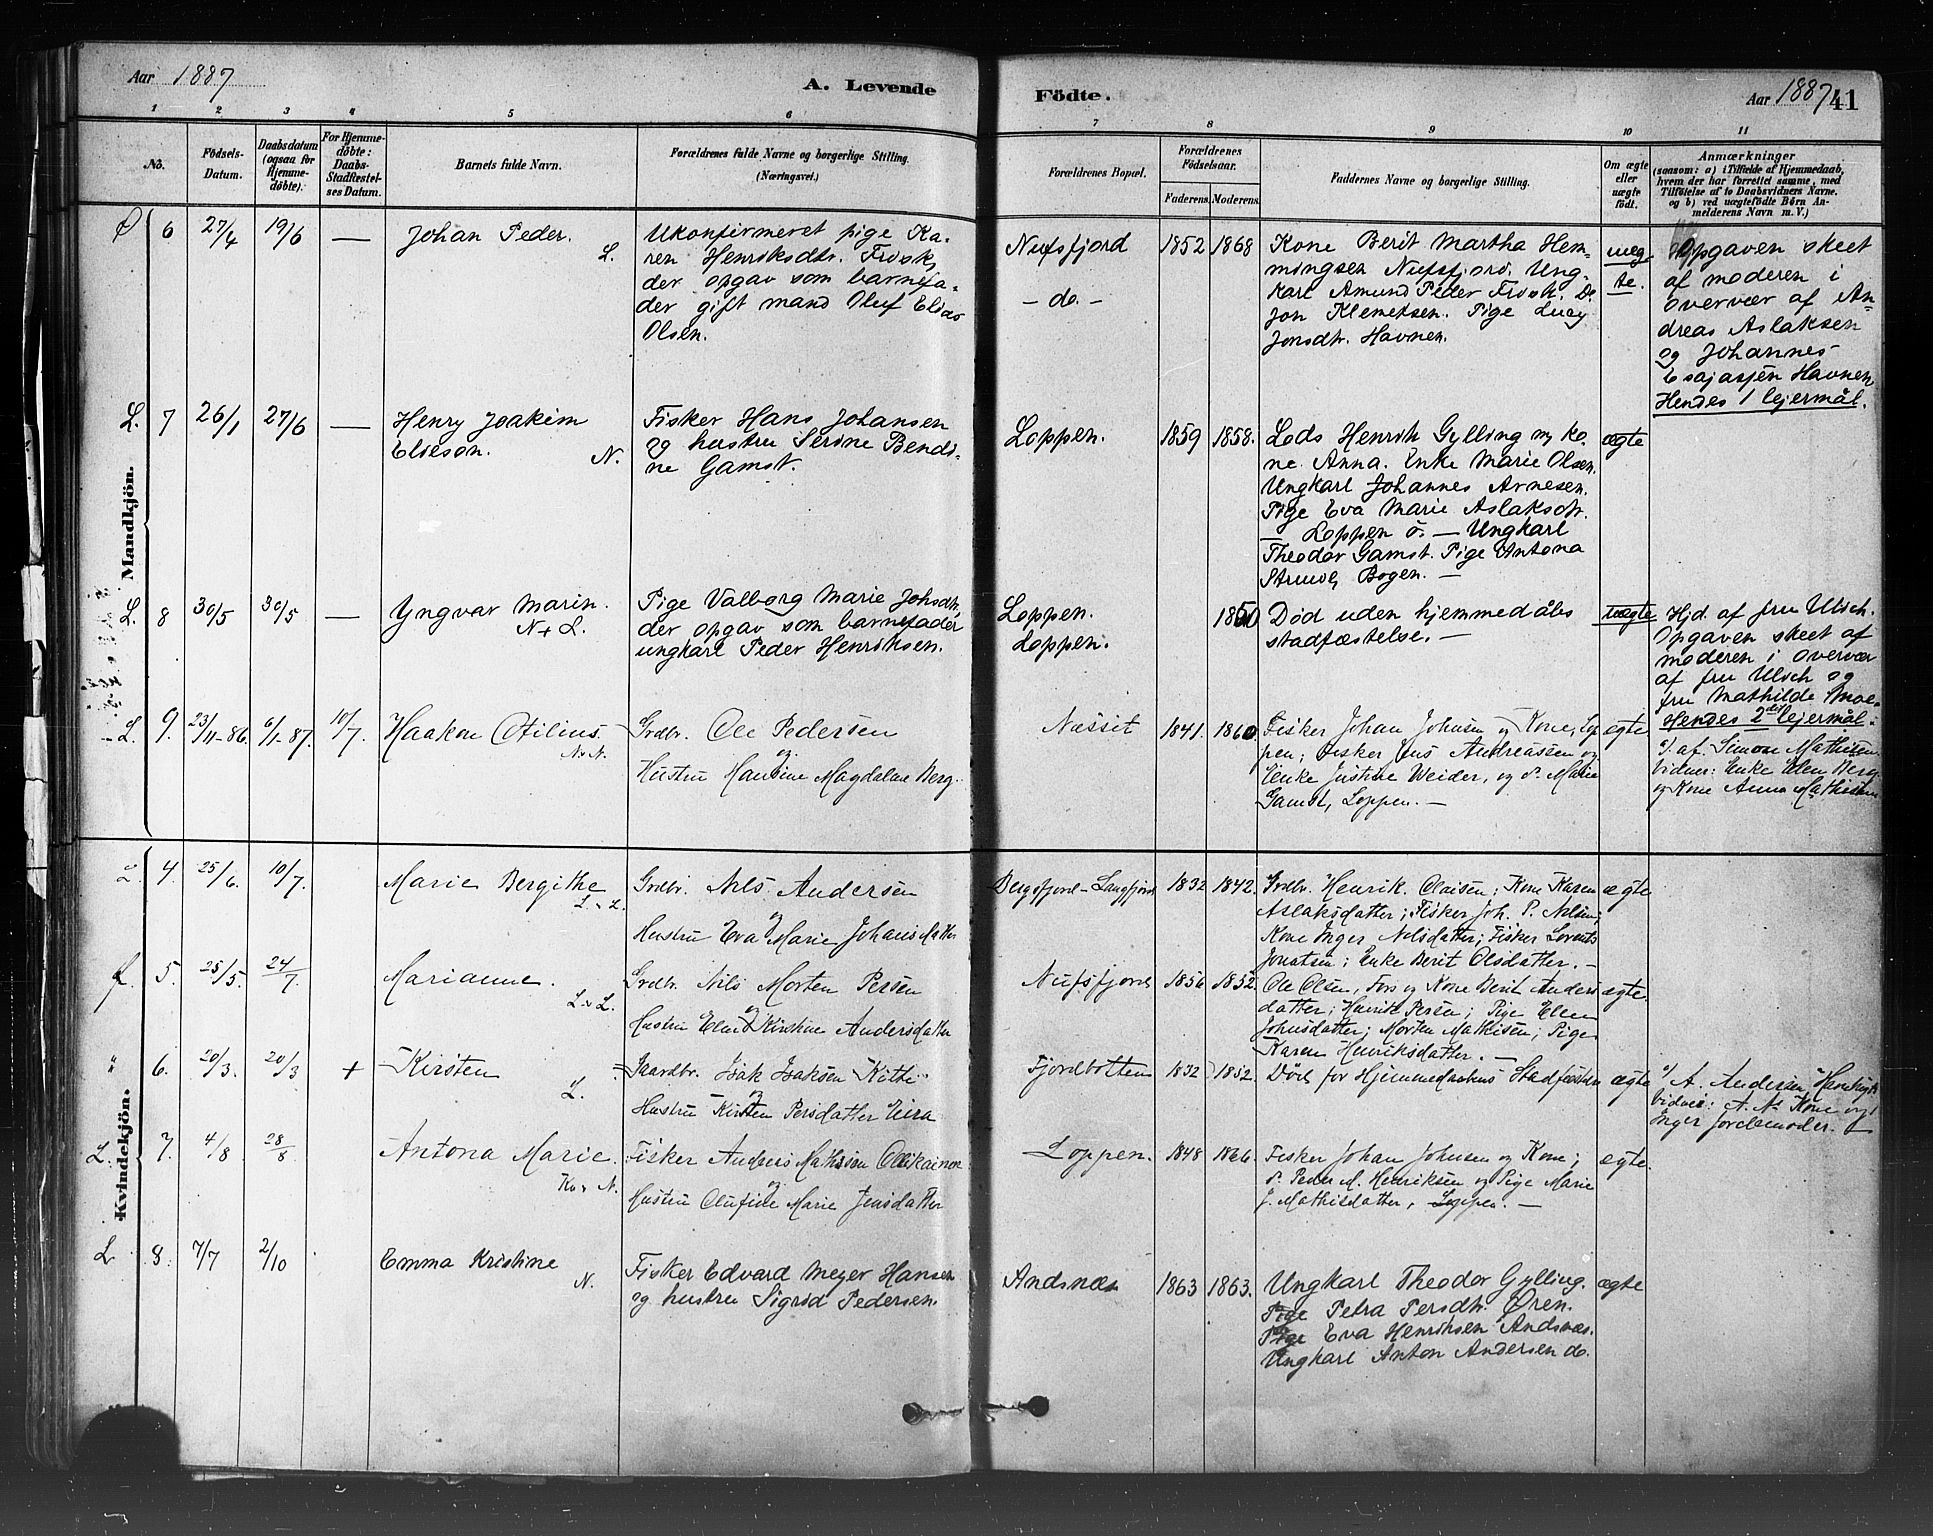 Aar 1887
A. Levende
Födte.
Aar 1887
41
1 2 3 4 5 6 7 8 9 10 11
No.
Födsels-
Datum.
Daabsdatum
(ogsaa for
Hjemme-
döbte).
For Hjemme-
döbte:
Daabs-
Stadfæstel-
ses Datum.
Barnets fulde Navn.
Forældrenes fulde Navne og borgerlige Stilling.
(Næringsvei.)
Forældrenes Bopæl.
Forældrenes
Födselsaar.
Faderens. Moderens.
Faddernes Navne og borgerlige Stilling.
Om ægte
eller
uægte
födt.
Anmærkninger
(saasom: a) i Tilfælde af Hjemmedaab,
hvem der har forrettet samme, med
Tilföielse af to Daabsvidners Navne,
og b) ved uægtefödte Börn An-
melderens Navn m. V.)
Mandkjön.
6 27/4 19/6 —
Johan Peder.
L.
Ukonfirmeret pige Ka-
ren Henriksdtr. Frosk,
der opgav som barnefa-
der gift mand Oluf Elias
Olsen.
Nufsfjord
— do. —
1852 1868
Kone Berit Martha Hem-
mingsen Nufsfjord. Ung-
karl Amund Peder Frosk. Do
Jon Klemetsen. Pige Lucy
Jonsdtr. Havnen.
uæg-
te.
Opgaven skeet
af moderen i
overvær af An-
dreas Aslaksen
og Johannes
Esajasjen Havnen
Hendes 1 lejermål.
L. 7 26/1 27/6 —
Henry Joakim
Elieson.
N.
Fisker Hans Johansen
og hustru Serine Bendi-
ne Gamst.
Loppen.
1859 1858.
Lods Henrik Gylling m ko-
ne Anna. Enke Marie Olsen.
Ungkarl Johannes Arnesen.
Pige Eva Marie Aslaksdtr.
— Loppen ö. — Ungkarl
Theodor Gamst. Pige Antona
Struve, Bogen. —
ægte
L. 8 30/5 30/5 —
Yngvar Marin.
N + L.
Pige Valborg Marie Johsdtr.
der opgav som barnefader
ungkarl Peder Henriksen.
Loppen.
Loppen.
1850
Död uden hjemmedåbs
stadfæstelse. —
uægte
Hjd. af fru Ulich.
Opgaven skeet af
moderen i overvær
af fru Ulich og
fru Mathilde Moe.
Hendes 2det lejermål.
L. 9. 23/11-86. 6/1-87. 10/7.
Haakon Otilius.
N. N.
Grdbr. Ole Pedersen
og
Hustru Hansine Magdalene Berg.
Næssit
1841. 1860
Fisker Johan Johnsen og Kone, Lop-
pen; Fisker Jens Andreassen og
Enke Justine Weider, og P. Marie
Gamst, Loppen. —
ægte
a). af Simone Mathisen
Vidner: Enke Elen Berg
og Kone Anna Mathisen
Kvindekjön.
L. 4. 25/6. 10/7.
Marie Bergithe
L. L.
Grdbr. Nils Andersen
og
Hustru Eva Marie Johansdatter
Bergsfjord-Langfjord
1832 1842.
Grdbr. Henrik Olaisen; Kone Karen
Aslaksdatter; Fisker Joh. P. Nilsen;
Kone Inger Nilsdatter; Fisker Lorents
Jonatsen; Enke Berit Olsdatter. —
ægte
5. 25/5. 24/7
Marianne.
L. L.
Grdbr. Nils Morten Persen
og
Hustru Elen Kirstine Andersdatter
Nufsfjord
1856 1852.
Ole Olsen, Fors og Kone Berit Anders-
datter; Henrik Persen; Pige Elen
Johnsdatter; Morten Mathisen; Pige
Karen Henriksdatter. —
ægte
" 6. 20/3. 20/3 +
Kirsten
L.
Gaardbr. Isak Isaksen Kitti
og
Hustru Kirsten Persdatter Eira
Fjordbotten
1832 1852.
Död för Hjemmedaabens Stadfæstelse
ægte
a) A. Andersen
Vidner: A. As Kone og
Inger Jordemoder.
L. 7. 4/8 28/8
Antona Marie.
Kv. N.
Fisker Anders Mathisen Ollikainen
og
Hustru Olufine Marie Jensdatter
Loppen.
1848 1866.
Fisker Johan Johnsen og Kone;
P. Peder M. Henriksen og Pige Marie
J. Mathisdatter, Loppen. —
ægte.
L 8. 7/7 2/10
Emma Kristine
N.
Fisker Edvard Meyer Hansen
og hustru Sigrid Pedersen.
Andsnæs
1863 1863.
Ungkarl Theodor Gylling.
Pige Petra Persdtr. Øren.
Pige Eva Henriksen Andsnæs.
Ungkarl Anton Andersen do.
ægte